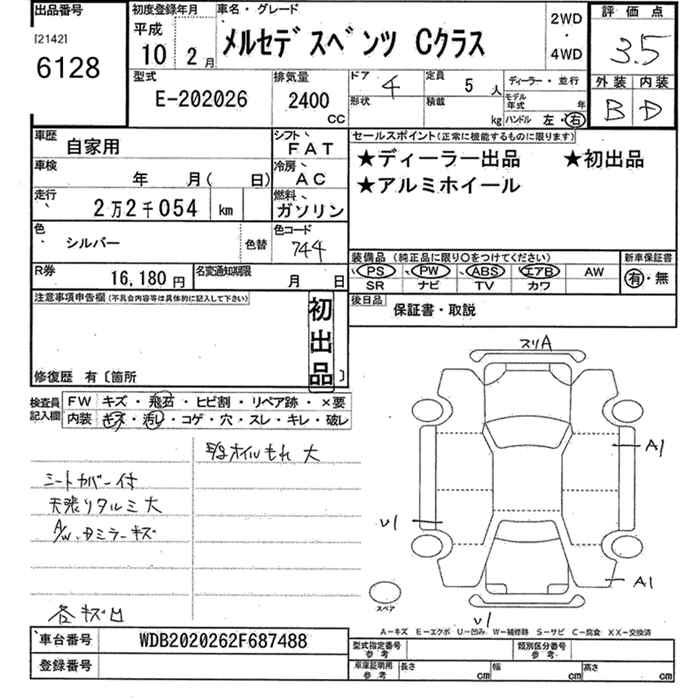 出品番号
[2142]
6128
初度登録年月
平成
10 2月
車名・グレード
メルセデスベンツ Cクラス
2WD
・
4WD
評価点
3.5
外装 内装
B D
型式
E-202026
排気量
2400
CC
ドア 4
形状
定員 5 人
積載 kg
ディーラー・並行
モデル年式 年
ハンドル 左・右
車歴 自家用
シフト FAT
車検 年 月( 日)
冷房 AC
走行 2万2千054 km
燃料 ガソリン
色 シルバー
色替
色コード 744
R券 16,180円
名変通知期限 月 日
セールスポイント(正常に機能するものに限ります)
★ディーラー出品 ★初出品
★アルミホイール
装備品(純正品に限り○をつけてください)
新車保証書
PS PW ABS エアB AW
SR ナビ TV カワ
有・無
後日品 保証書・取説
注意事項申告欄(不具合内容等は具体的に記入して下さい)
初出品
修復歴 有〔箇所 〕
検査員記入欄
FW キズ・飛石・ヒビ割・リペア跡・×要
内装 キズ・汚レ・コゲ・穴・スレ・キレ・破レ
オイルもれ 大
シートカバー付
天張りタルミ大
A/W、Dミラーキズ
各キズ凹
スリA
A1
U1
A1
U1
スペア
A-キズ E-エクボ U-凹み W-補修跡 S-サビ C-腐食 XX-交換済
車台番号 WDB2020262F687488
登録番号
型式指定番号 参考
類別区分番号 参考
車庫証明用 参考
長さ cm 幅 cm 高さ cm